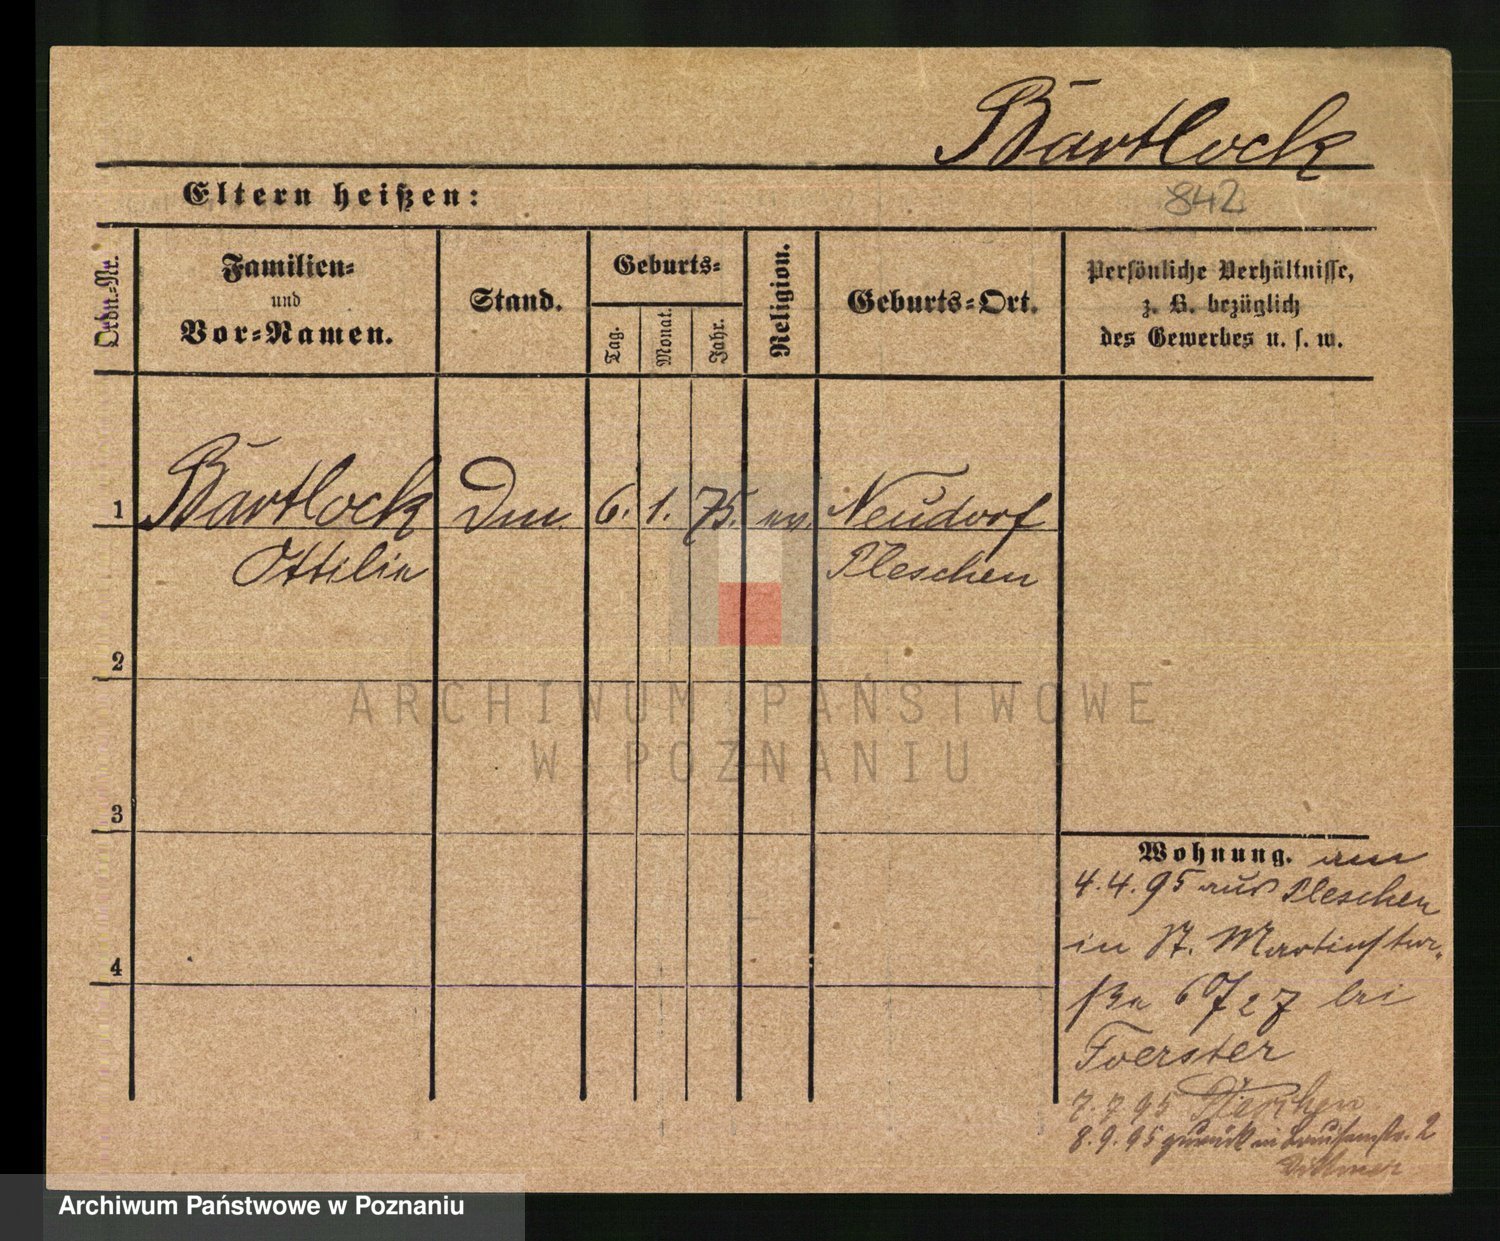 Bartlock
Eltern heißen:
842
Ordn.-Nr.
Familien-
und
Vor-Namen.
Stand.
Geburts-
Tag.
Monat.
Jahr.
Religion.
Geburts-Ort.
Persönliche Verhältnisse,
z. B. bezüglich
des Gewerbes u. s. w.
1 Bartlock 6. 1. 75. ev. Neudorf
Ottilie Pleschen
2
ARCHIWUM PAŃSTWOWE
W POZNANIU
3
Wohnung. am
4.4.95 aus Pleschen
in St. Martinstr.
bei
Foerster
7.7.95 Pleschen
8.9.95 zurück in Louisenstr. 2
4
Archiwum Państwowe w Poznaniu